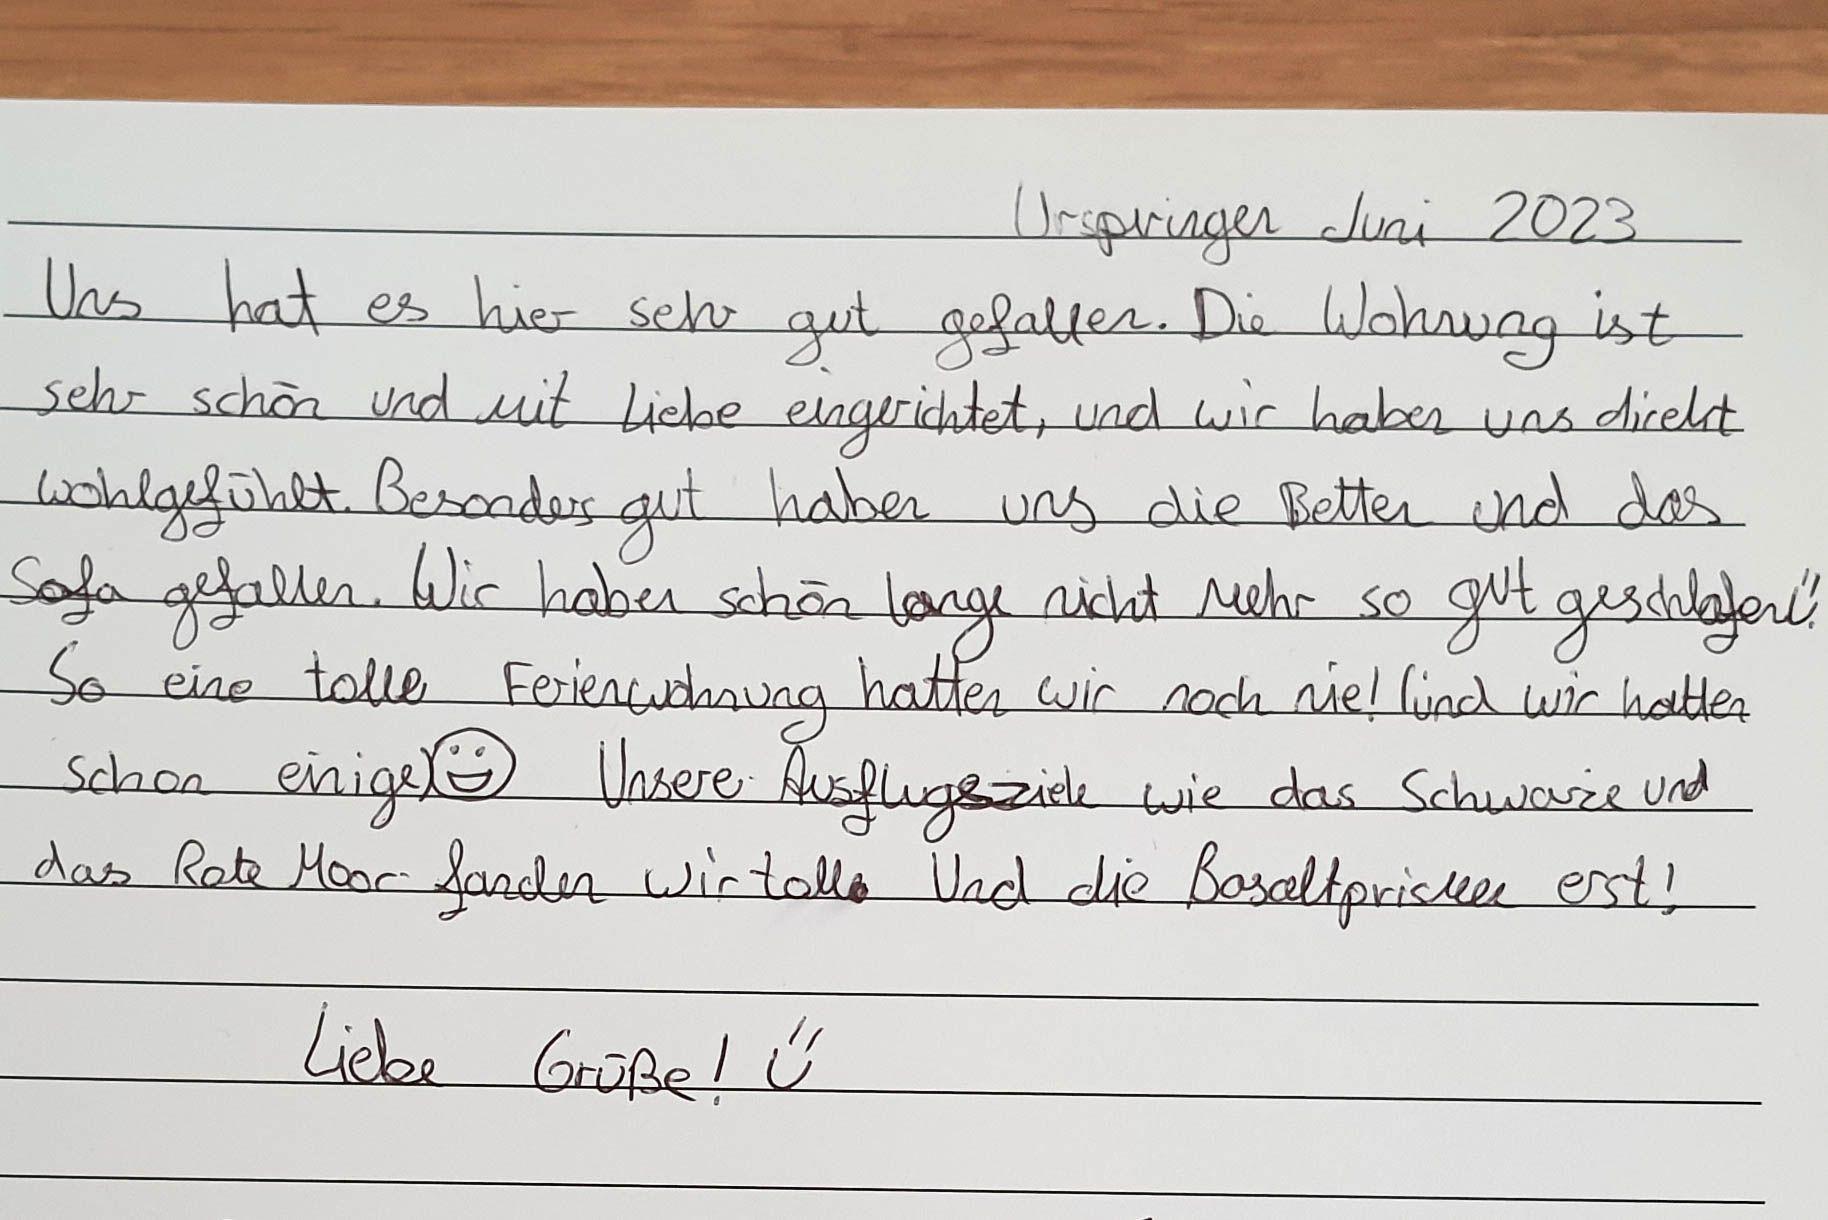 Urspringen Juni 2023
Uns hat es hier sehr gut gefallen. Die Wohnung ist
sehr schön und mit Liebe eingerichtet, und wir haben uns direkt
wohlgefühlt. Besonders gut haben uns die Betten und das
Sofa gefallen. Wir haben schön lange nicht mehr so gut geschlafen!
So eine tolle Ferienwohnung hatten wir noch nie! (und wir hatten
schon einige) Unsere Ausflugsziele wie das Schwarze und
das Rote Moor fanden wir toll. Und die Basaltprismen erst!
Liebe Grüße!